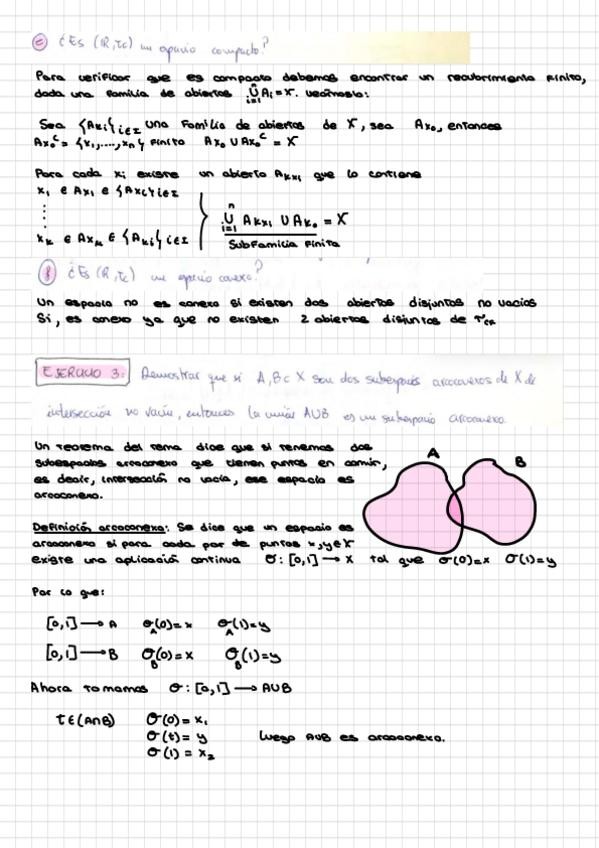 e ¿Es (ℝ, τc) un espacio compacto?
Para verificar que es compacto debemos encontrar un recubrimiento finito,
dada una familia de abiertos ⋃ⁿᵢ₌₁ Ai = X. Veámoslo:
Sea {Aki}i∈I una familia de abiertos de X, sea Ax₀, entonces
Ax₀ᶜ = {x₁,...,xn} finito Ax₀ ∪ Ax₀ᶜ = X
Para cada xi existe un abierto Akxi que lo contiene
x₁ ∈ Ax₁ ∈ {Axi}i∈I
⋮
xk ∈ Axk ∈ {Aki}i∈I
⋃ⁿᵢ₌₁ Akxi ∪ Ak₀ = X
Subfamilia finita
f ¿Es (ℝ, τc) un espacio conexo?
Un espacio no es conexo si existen dos abiertos disjuntos no vacíos
Sí, es conexo ya que no existen 2 abiertos disjuntos de τcf
EJERCICIO 3: Demostrar que si A, B ⊂ X son dos subespacios arcoconexos de X de
intersección no vacía, entonces la unión A∪B es un subespacio arcoconexo.
Un teorema del tema dice que si tenemos dos
subespacios arcoconexo que tienen puntos en común,
es decir, intersección no vacía, ese espacio es
arcoconexo.
A
B
Definición arcoconexo: Se dice que un espacio es
arcoconexo si para cada par de puntos x,y∈X
existe una aplicación continua σ: [0,1] → X tal que σ(0)=x σ(1)=y
Por lo que:
[0,1] → A σA(0)=x σA(1)=y
[0,1] → B σB(0)=x σB(1)=y
Ahora tomamos σ: [0,1] → A∪B
t∈(A∩B) σ(0)=x₁
σ(t)=y luego A∪B es arcoconexo.
σ(1)=x₂